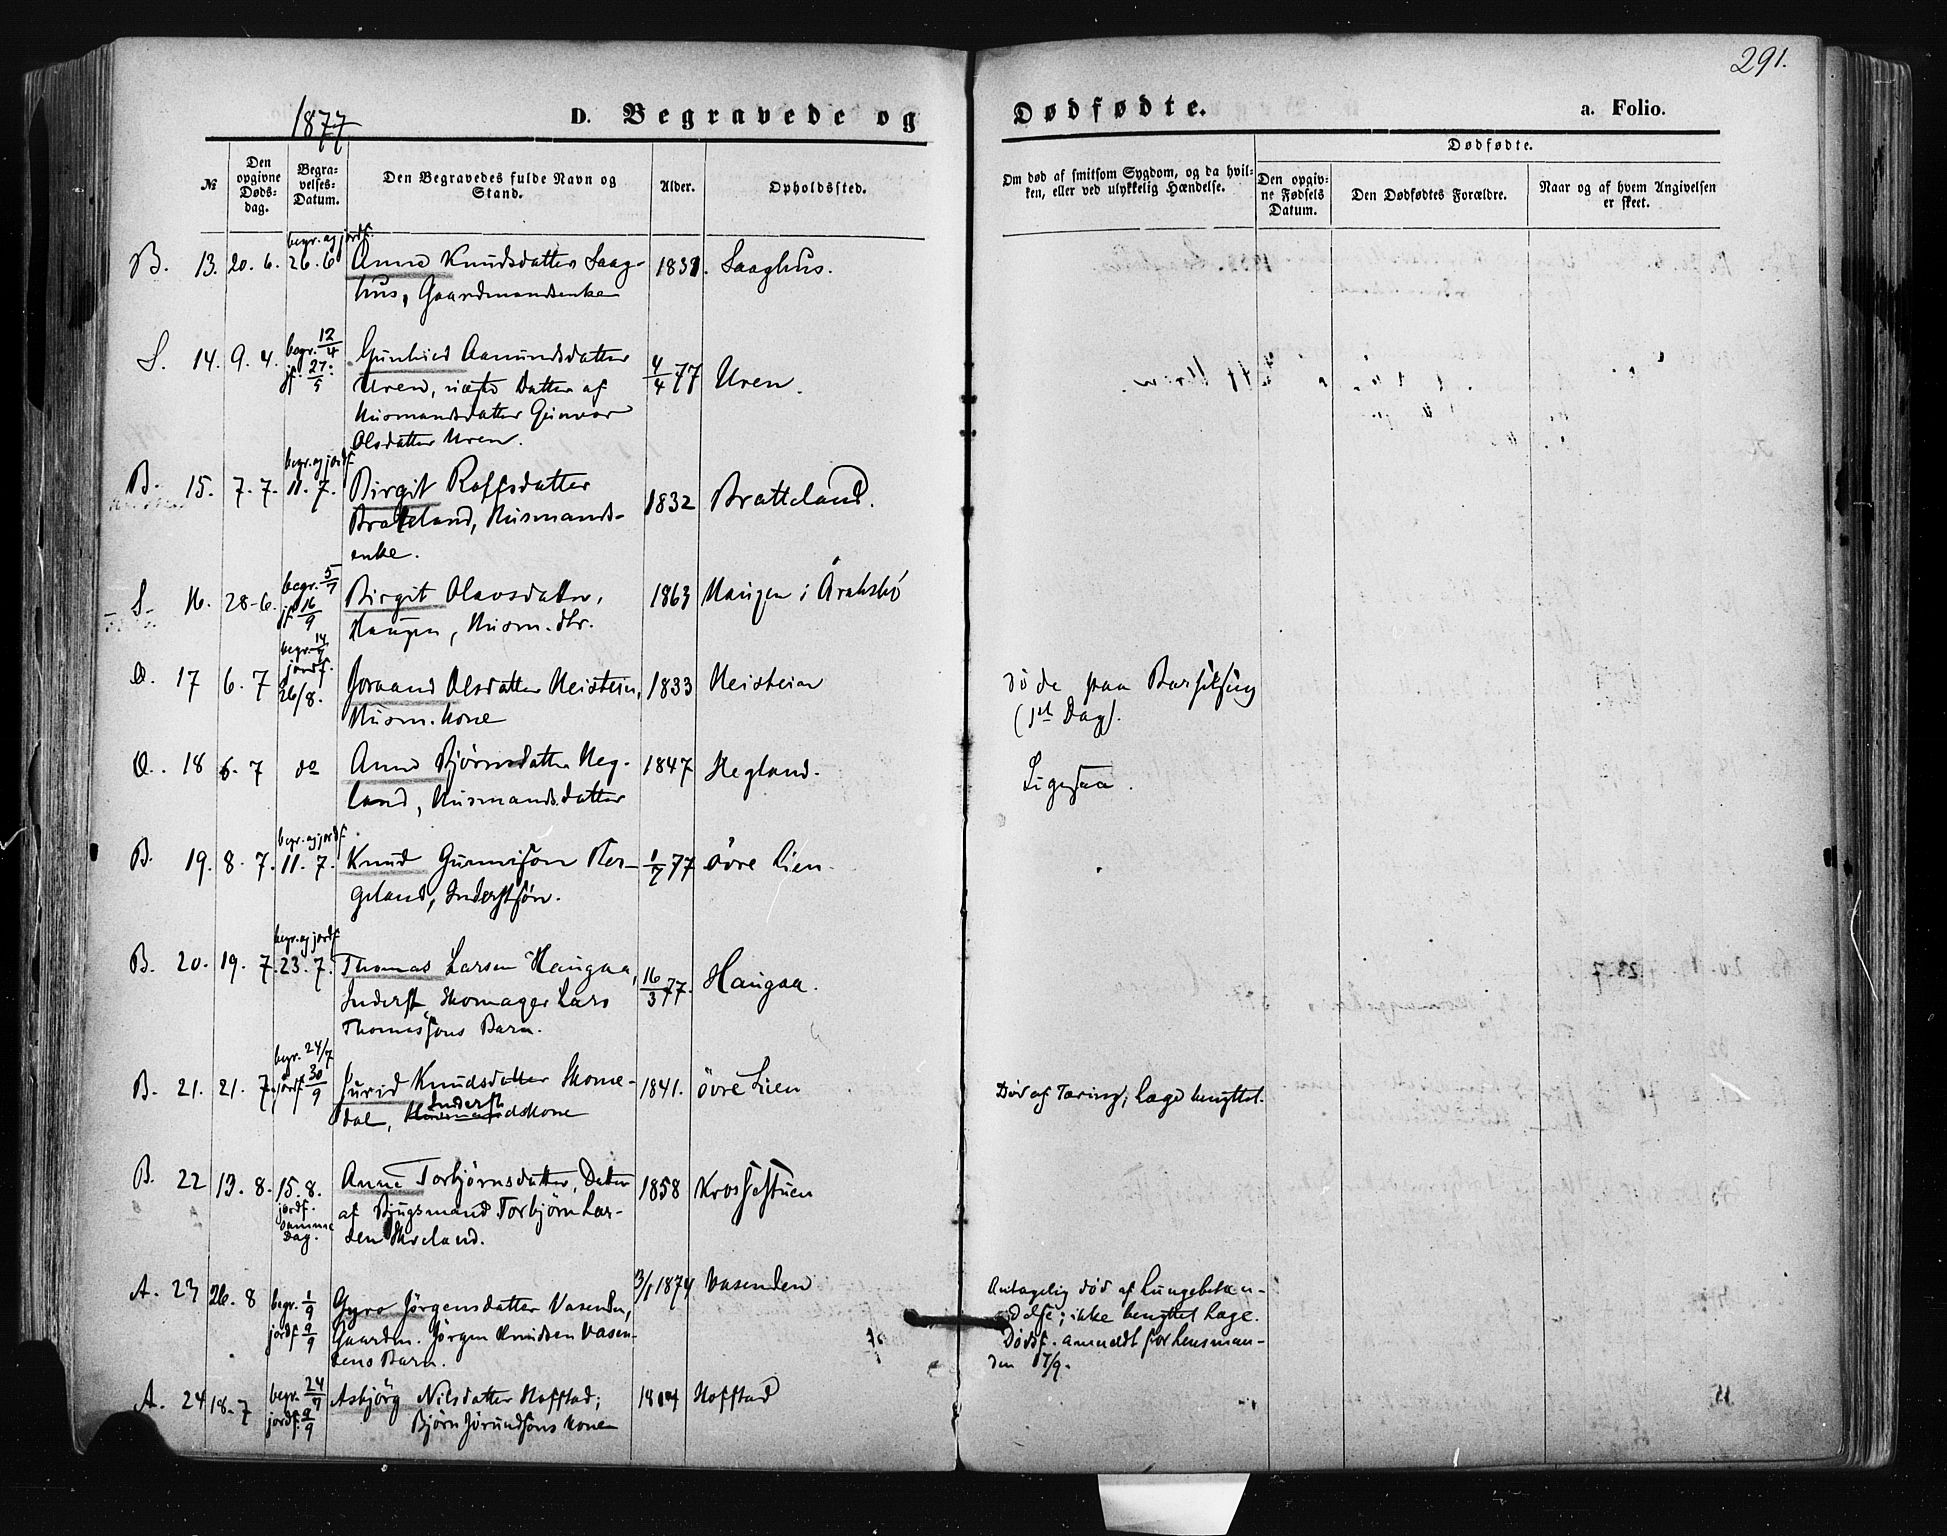 291.
1877
D. Begravede og Dødfødte. a. Folio.
№
Den opgivne Døds-dag.
Begra-velses-Datum.
Den Begravedes fulde Navn og Stand.
Alder.
Opholdssted.
Om død af smitsom Sygdom, og da hvil-ken, eller ved ulykkelig Hændelse.
Dødfødte.
Den opgiv-ne Fødsels Datum.
Den Dødfødtes Forældre.
Naar og af hvem Angivelsen er skeet.
begr. og jordf.
B. 13. 20. 6. 26. 6 Anne Knudsdatter Saag- 183 . Saaghus.
hus, Gaardmandsenke
S. 14. 9. 4. begr. 12/4 Gunhild Aamundsdatter
jf. 27/5 Uren, uægte Datter af 4/4 77 Uren.
Husmandsdatter Gunvor
Olsdatter Uren.
begr. og jordf.
B. 15. 7. 7. 11. 7. Birgit Rolfsdatter
Bratteland, Husmands- 1832 Bratteland.
enke.
S. 16. 28-6. begr. 5/7 Birgit Olavsdatter, 1863 Haugen i Årakbø
jf 16/9 Haugen, Husm. dtr.
begr. 14/7
17 6. 7 jordf. 26/8. Joraand Olsdatter Heistein, 1833 Heistein døde paa Barselseng
Husm. kone (1ste Dag).
18 6. 7 do Anne Bjørnsdatter Heg- 1847 Hegland. Ligesaa.
land, Husmandsdatter
begr. og jordf.
B. 19. 8. 7. 11. 7. Knud Gunnarsøn Her- 1/7 77 øvre Lien.
geland, Inderstsøn.
begr. og jordf
B. 20. 19. 7. 23. 7. Thomas Larsen Haugaa, 16/3 77. Haugaa.
Inderst, Skomager Lars
Thomassøns Barn.
begr. 24/7
B. 21. 21. 7. jordf 30/9 Jurid Knudsdatter Skome- 1841. øvre Lien Død af Tæring; Læge benyttet.
dal, Inderst Husmandskone
B. 22 13. 8. 15. 8. Anne Torbjørnsdatter, Datter 1858 Krossestuen
jordf. samme Dag. af Bygsmand Torbjørn Lar-
sen Skreland.
A. 23 26. 8 begr. 1/9 Gyro Jörgensdatter Vasenden, 3/1 1874 Vasenden Antagelig død af Lungebetæn-
jordf 9/9 Gaardm. Jörgen Knudsen Vasen- delse; ikke benyttet Læge.
dens Barn. Dødsf. anmeldt for Lensman-
den 17/9.
A. 24 18. 7 begr. 24/7 Asbjörg Nilsdatter Hoffstad; Hoffstad
jordf. 9/9 Bjørn Jörundsøns kone